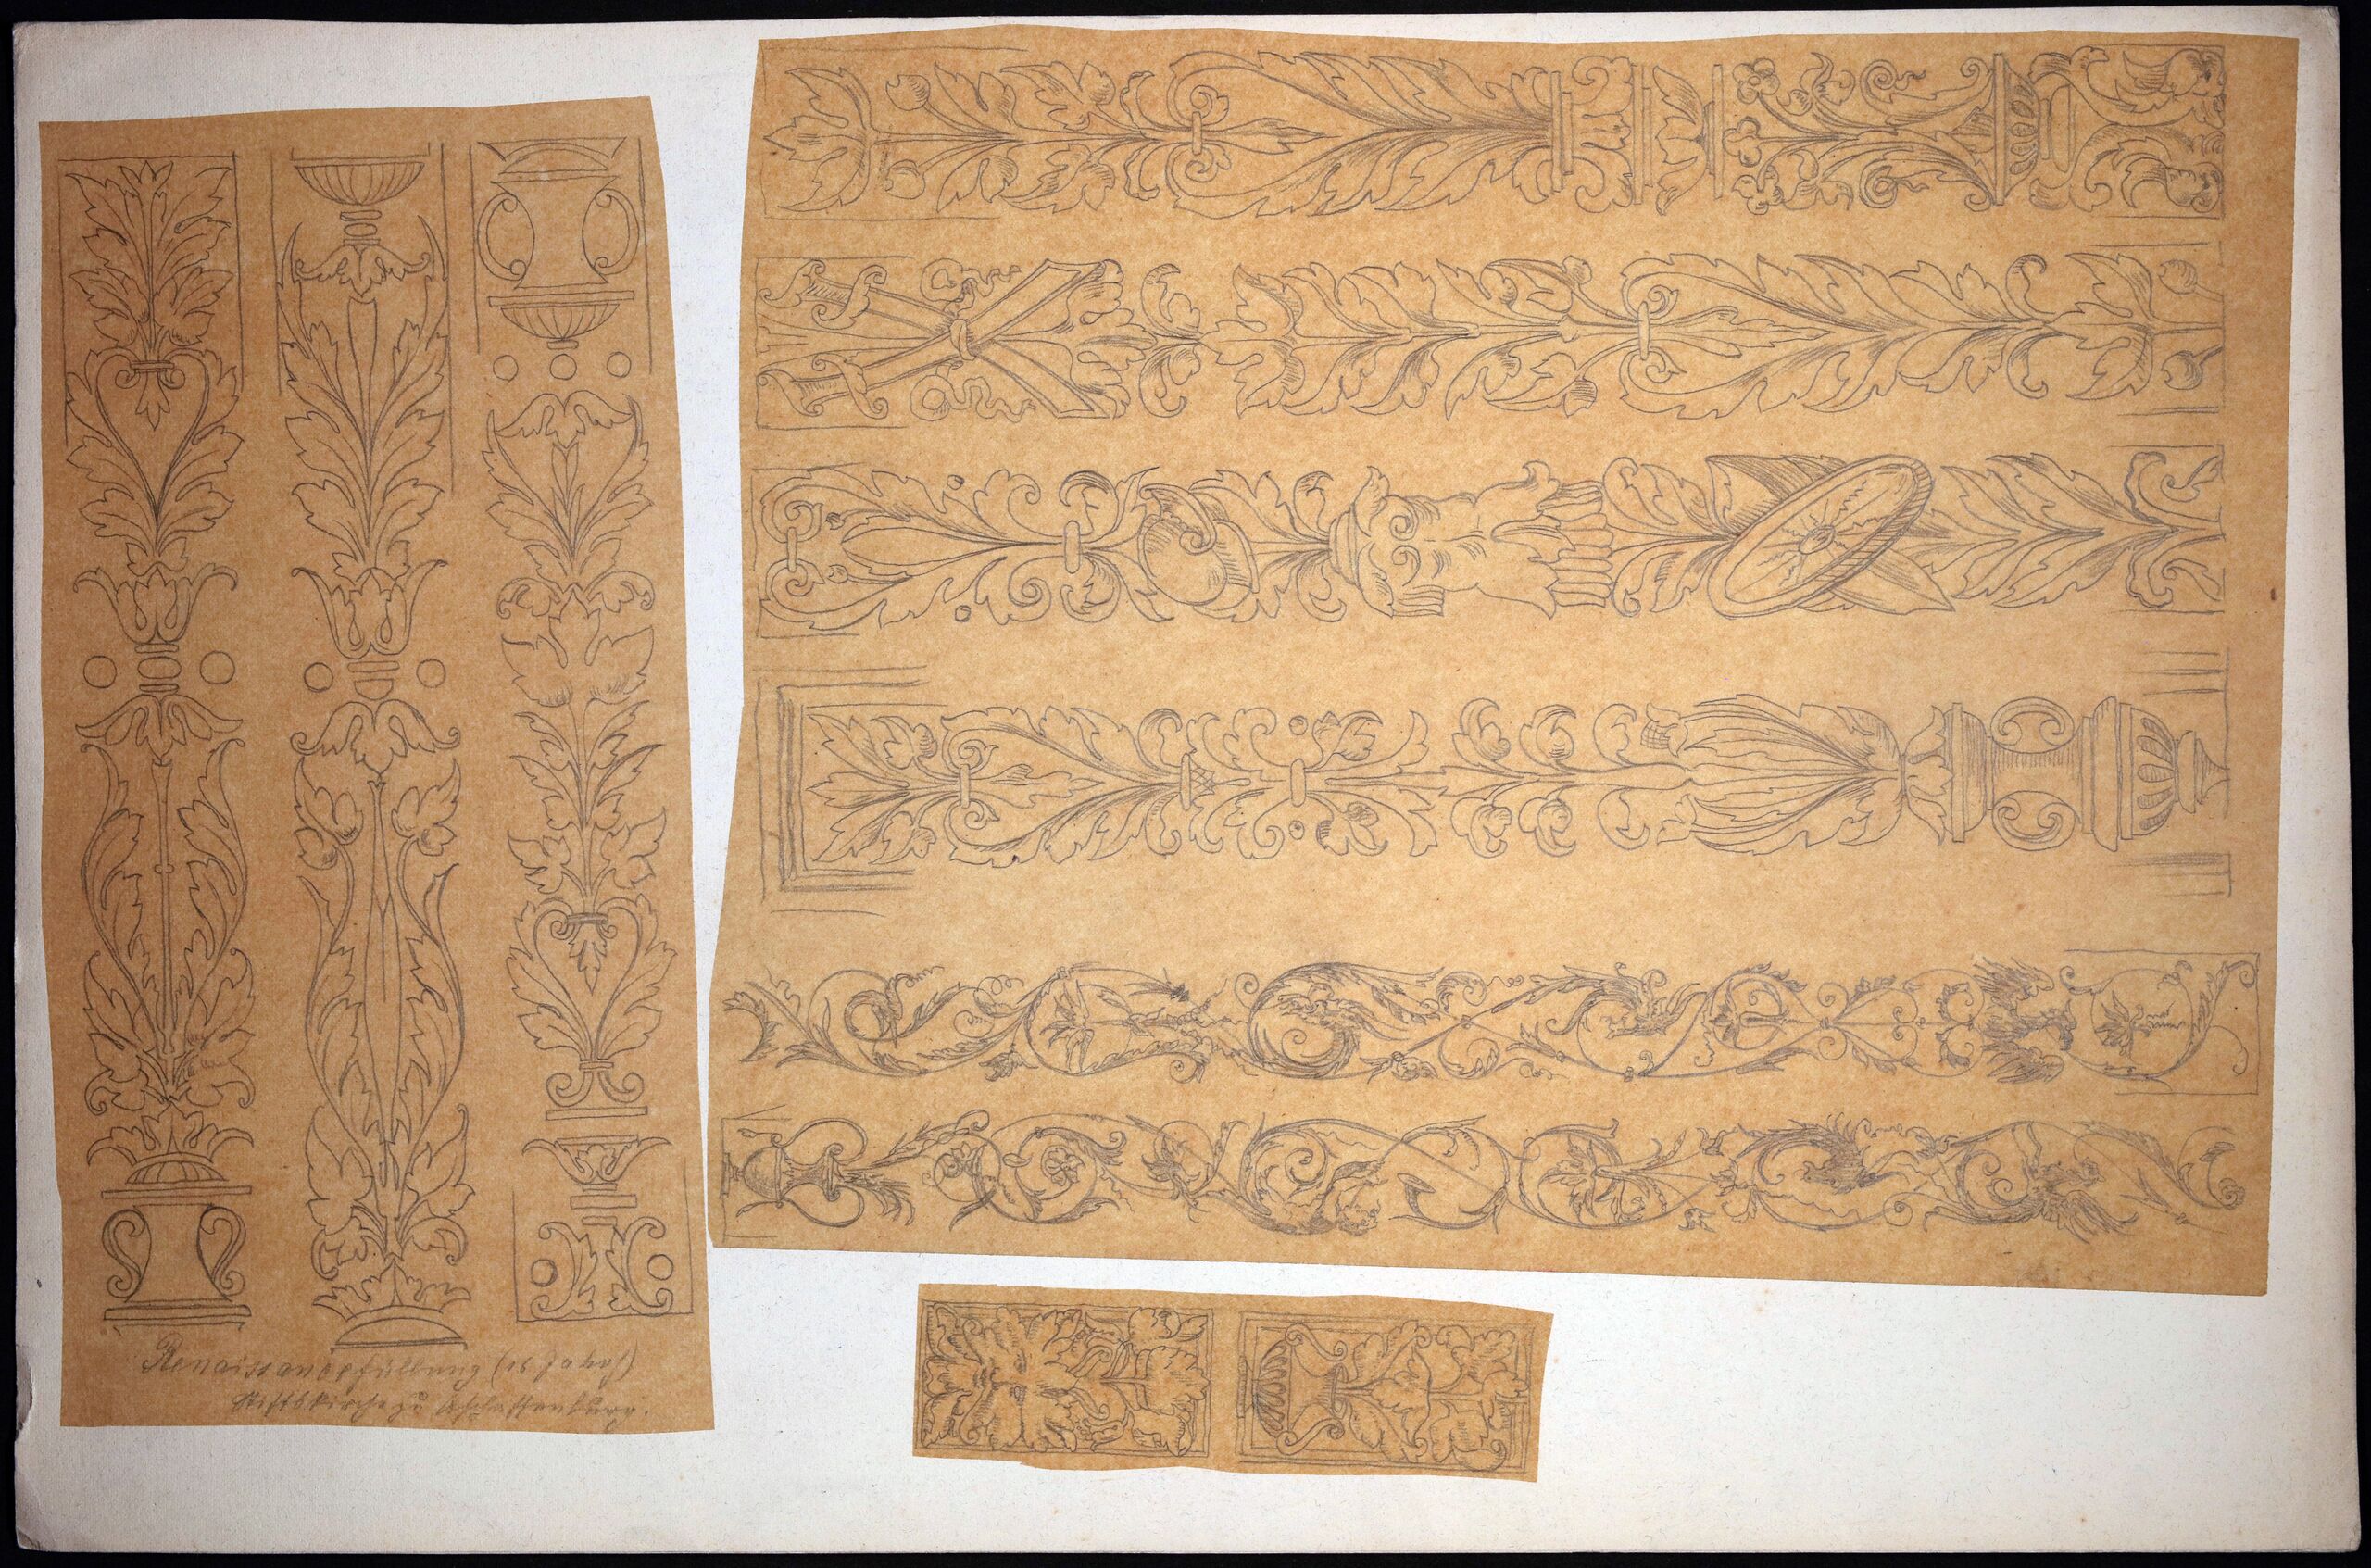 Renaissancefüllung (16 Jahrh)
Stiftskirche zu Aschaffenburg.